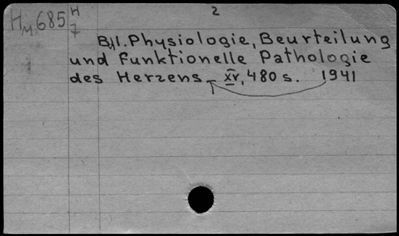 2
Hy 685 H/7
B.II. Physiologie, Beurteilung
und funktionelle Pathologie
des Herzens – XV, 480 s. 1941